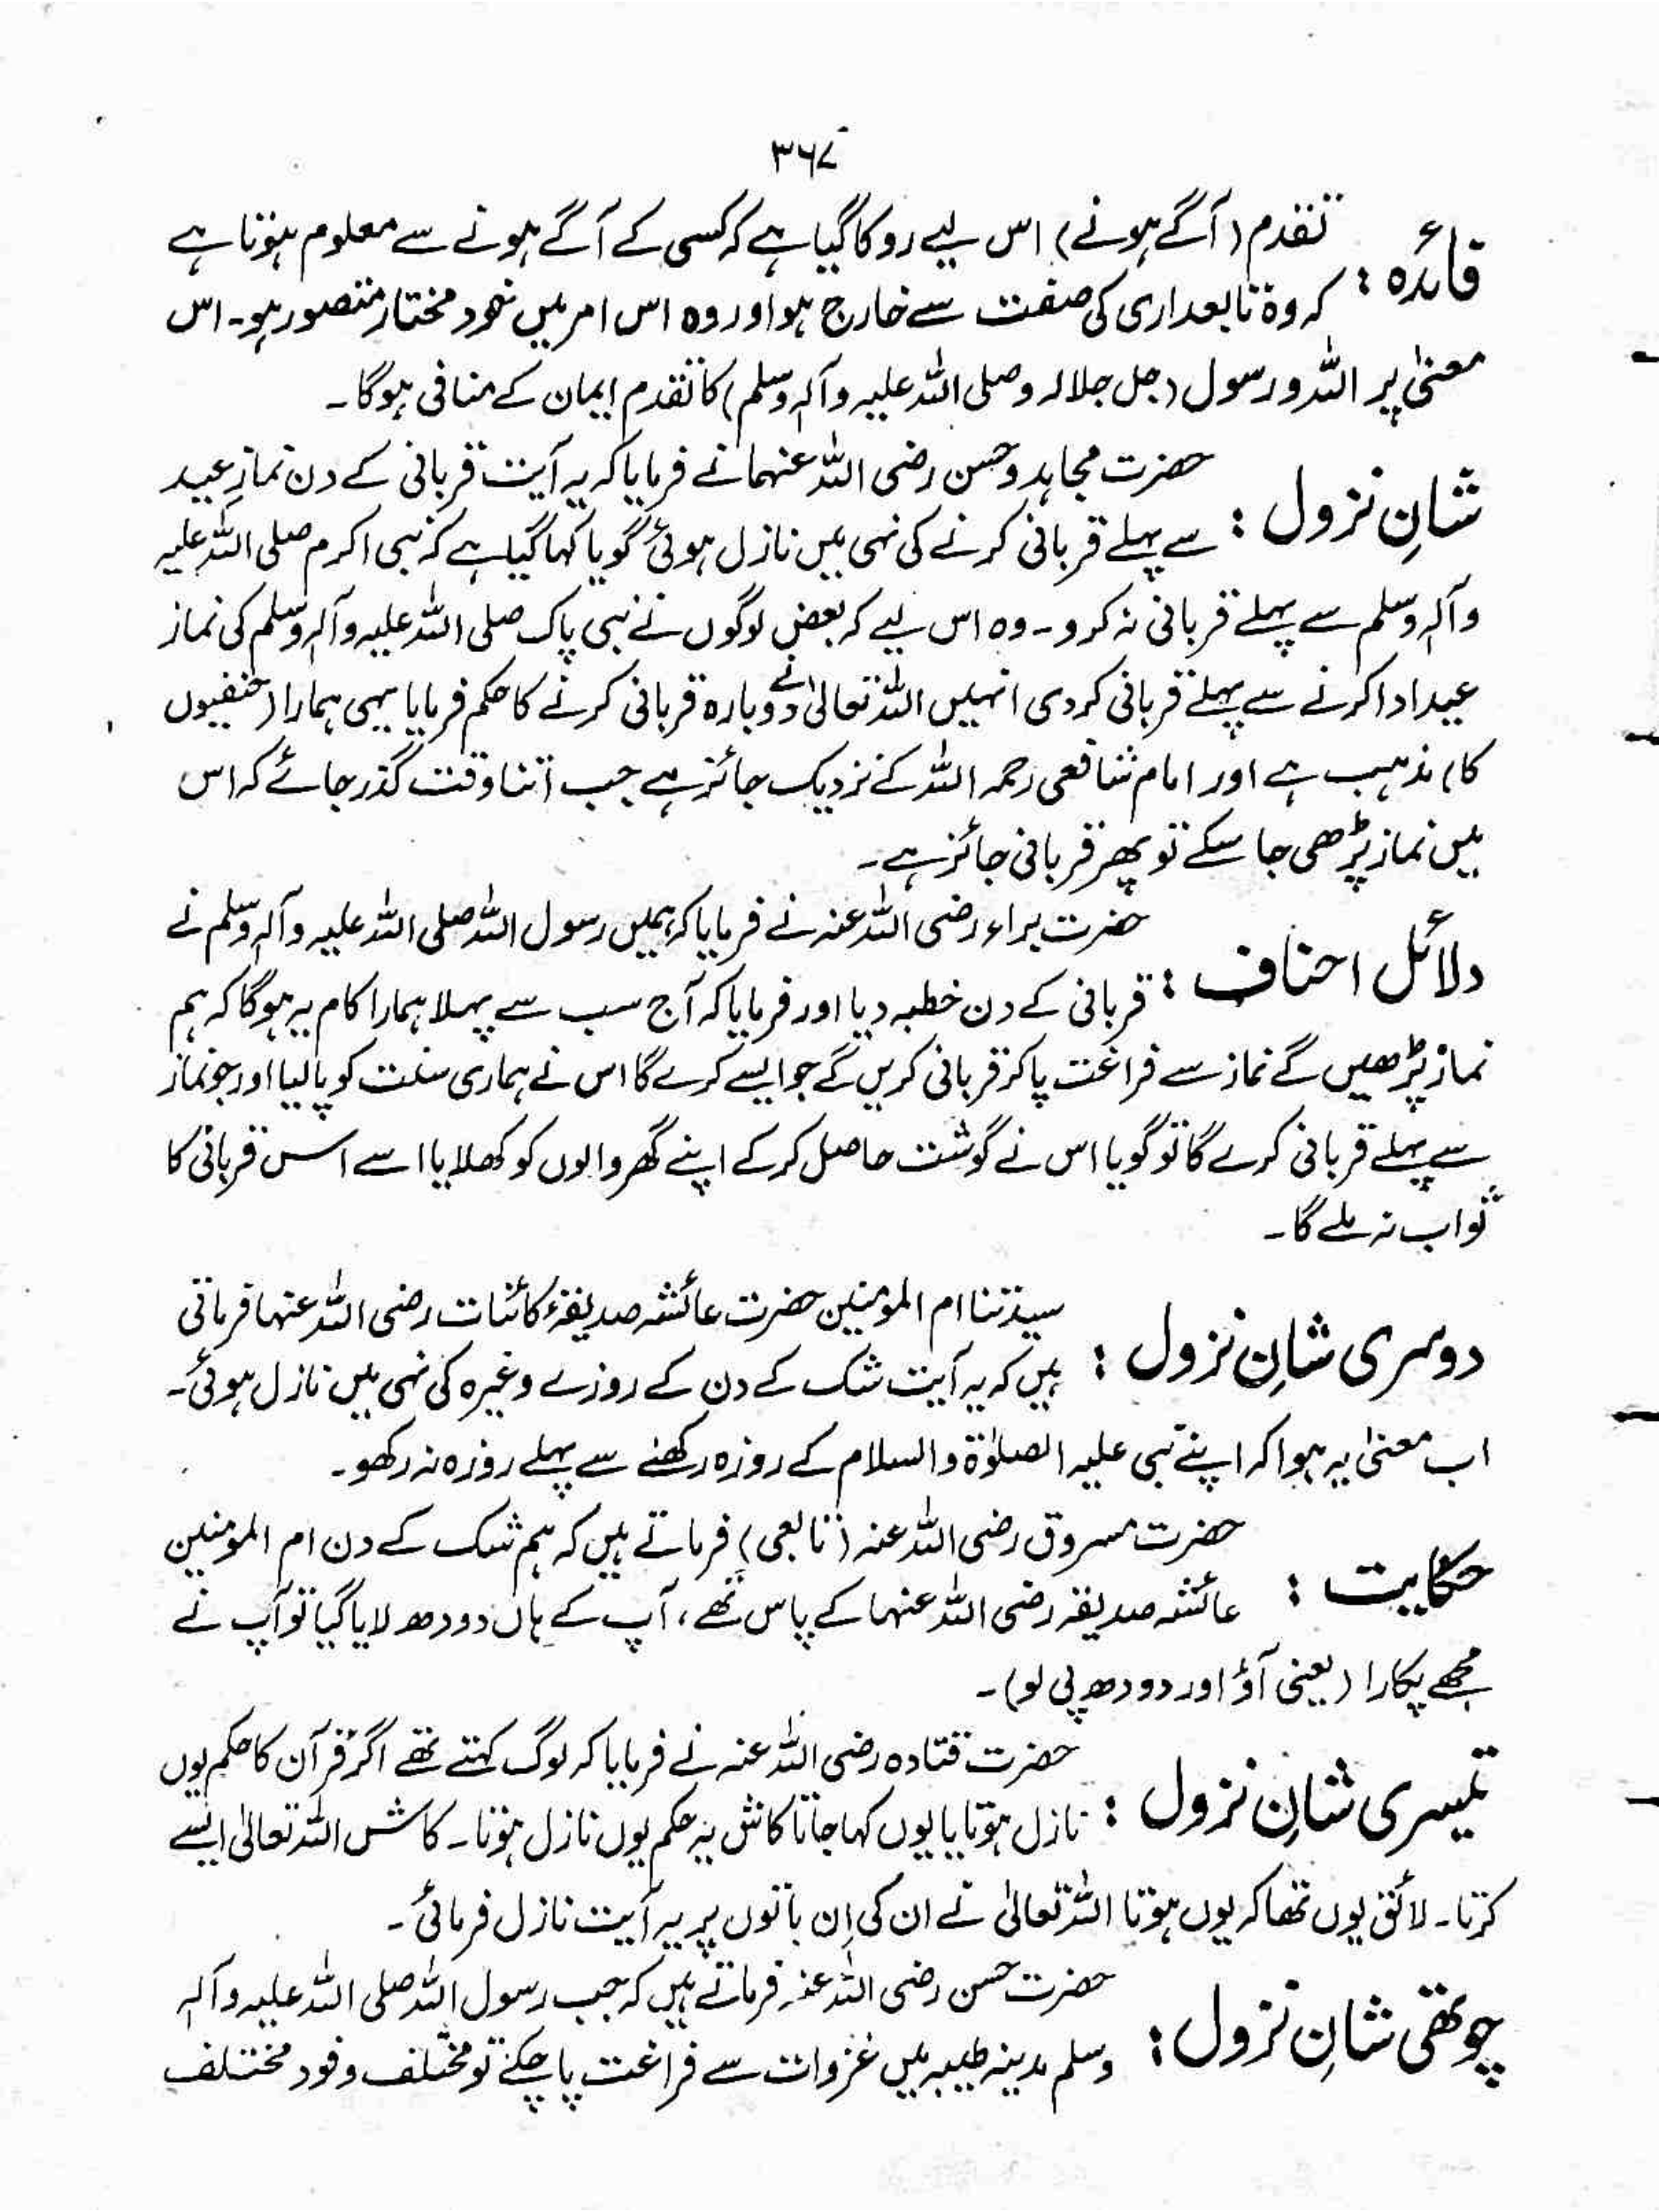 ۳۶۷
تقدم (آگے ہونے) اس لیے روکا گیا ہے کہ کسی کے آگے ہونے سے معلوم ہوتا ہے
فائدہ : کہ وہ تابعداری کی صفت سے خارج ہو اور وہ اس امر میں خود مختار متصور ہو۔ اس
معنیٰ پر اللہ و رسول (جل جلالہ وصلی اللہ علیہ وآلہ وسلم) کا تقدم ایمان کے منافی ہوگا۔
حضرت مجاہد وحسن رضی اللہ عنہما نے فرمایا کہ یہ آیت قربانی کے دن نمازِ عید
شانِ نزول : سے پہلے قربانی کرنے کی نہی میں نازل ہوئی گویا کہا گیا ہے کہ نبی اکرم صلی اللہ علیہ
وآلہ وسلم سے پہلے قربانی نہ کرو۔ وہ اس لیے کہ بعض لوگوں نے نبی پاک صلی اللہ علیہ وآلہ وسلم کی نماز
عید ادا کرنے سے پہلے قربانی کردی انہیں اللہ تعالیٰ نے دوبارہ قربانی کرنے کا حکم فرمایا یہی ہمارا (حنفیوں
کا) مذہب ہے اور امام شافعی رحمہ اللہ کے نزدیک جائز ہے جب اتنا وقت گذر جائے کہ اس
میں نماز پڑھی جا سکے تو پھر قربانی جائز ہے۔
حضرت براء رضی اللہ عنہ نے فرمایا کہ ہمیں رسول اللہ صلی اللہ علیہ وآلہ وسلم نے
دلائل احناف : قربانی کے دن خطبہ دیا اور فرمایا کہ آج سب سے پہلا ہمارا کام یہ ہوگا کہ ہم
نماز پڑھیں گے نماز سے فراغت پا کر قربانی کریں گے جو ایسے کرے گا اس نے ہماری سنت کو پالیا اور جو نماز
سے پہلے قربانی کرے گا تو گویا اس نے گوشت حاصل کرکے اپنے گھر والوں کو کھلایا اسے اس قربانی کا
ثواب نہ ملے گا۔
سیدتنا ام المومنین حضرت عائشہ صدیقۂ کائنات رضی اللہ عنہا فرماتی
دوسری شانِ نزول : ہیں کہ یہ آیت شک کے دن کے روزے وغیرہ کی نہی میں نازل ہوئی۔
اب معنیٰ یہ ہوا کہ اپنے نبی علیہ الصلوٰۃ والسلام کے روزہ رکھنے سے پہلے روزہ نہ رکھو۔
حضرت مسروق رضی اللہ عنہ (تابعی) فرماتے ہیں کہ ہم شک کے دن ام المومنین
حکایت : عائشہ صدیقہ رضی اللہ عنہا کے پاس تھے، آپ کے ہاں دودھ لایا گیا تو آپ نے
مجھے پکارا (یعنی آؤ اور دودھ پی لو)۔
حضرت قتادہ رضی اللہ عنہ نے فرمایا کہ لوگ کہتے تھے اگر قرآن کا حکم یوں
تیسری شانِ نزول : نازل ہوتا یا یوں کہا جاتا کاش یہ حکم یوں نازل ہوتا۔ کاش اللہ تعالیٰ ایسے
کرتا۔ لائق یوں تھا کہ یوں ہوتا اللہ تعالیٰ نے ان کی اِن باتوں پر یہ آیت نازل فرمائی۔
حضرت حسن رضی اللہ عنہ فرماتے ہیں کہ جب رسول اللہ صلی اللہ علیہ وآلہ
چوتھی شانِ نزول : وسلم مدینہ طیبہ میں غزوات سے فراغت پا چکے تو مختلف وفود مختلف